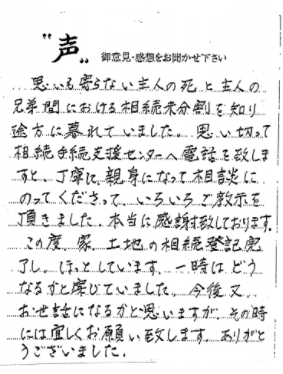 "声" 御意見・感想をお聞かせ下さい
思いも寄らない主人の死と主人の
兄弟間における相続未分割を知り
途方に暮れていました。思い切って
相続手続支援センターへ電話を致しま
すと、丁寧に、親身になって相談に
のってくださって、いろいろご教示を
頂きました。本当に感謝致しております。
この度、家、土地の相続登記完
了し、ほっとしています。一時はどう
なるかと案じていました。今後又、
お世話になるかと思いますが、その時
には宜しくお願い致します。ありがと
うございました。